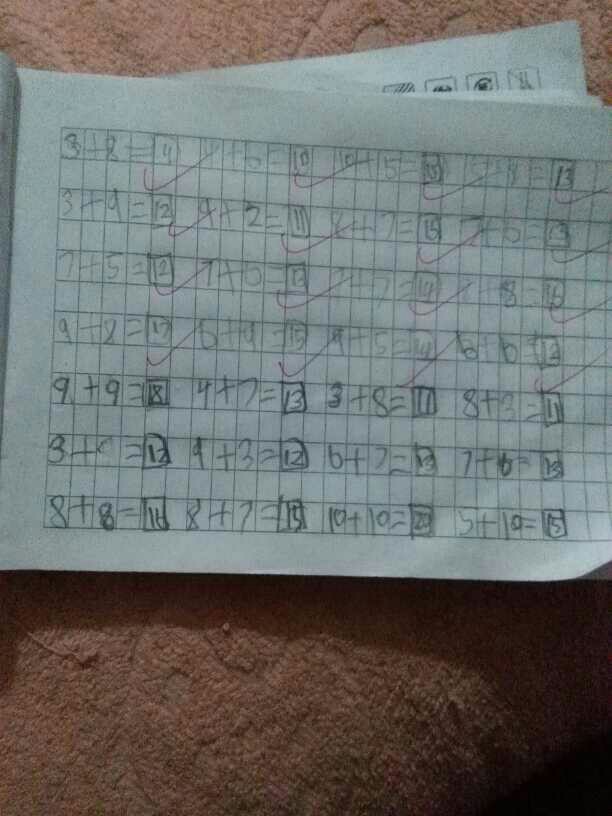 3+8=11 4+6=10 10+5=15 5+8=13
3+9=12 9+2=11 8+7=15 7+6=13
7+5=12 7+6=13 7+7=14 8=16
9+8=17 6+9=15 9+5=14 6+6=12
9+9=18 4+7=13 3+8=11 8+3=11
3+ =12 9+3=12 6+7=13 7+6=13
8+8=16 8+7=15 10+10=20 5+10=15